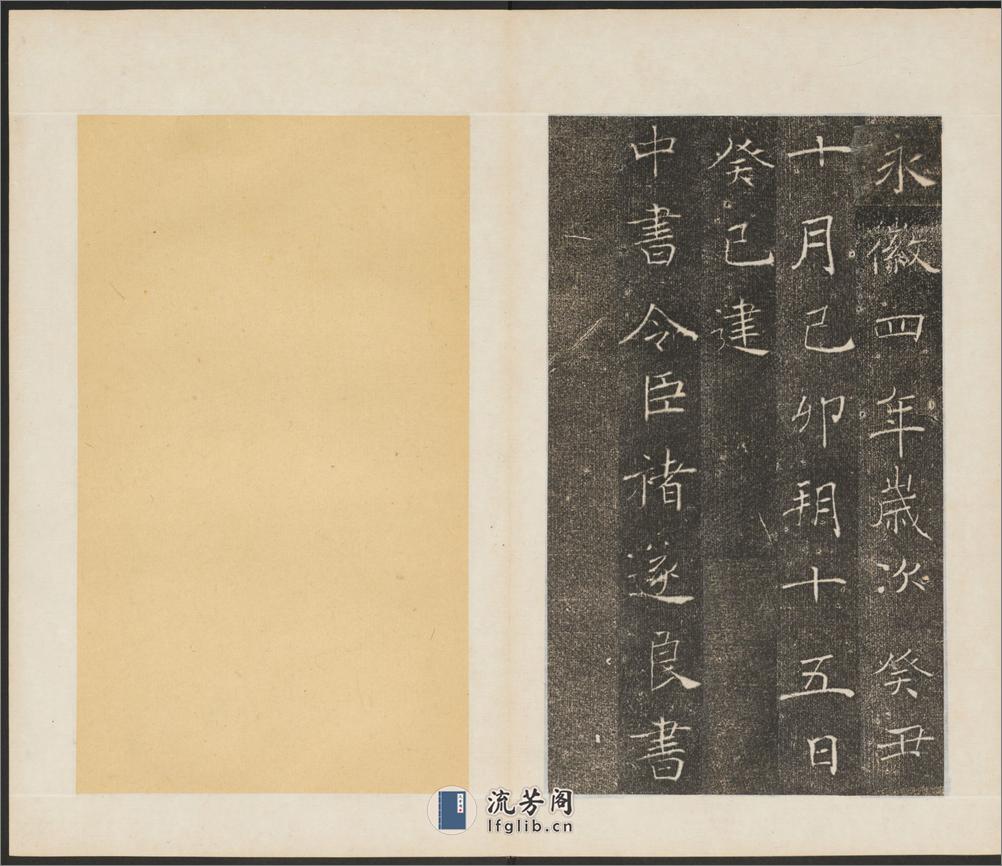 永徽四年歲次癸丑
十月己卯朔十五日
癸巳建
中書令臣褚遂良書
流芳阁
lfglib.cn